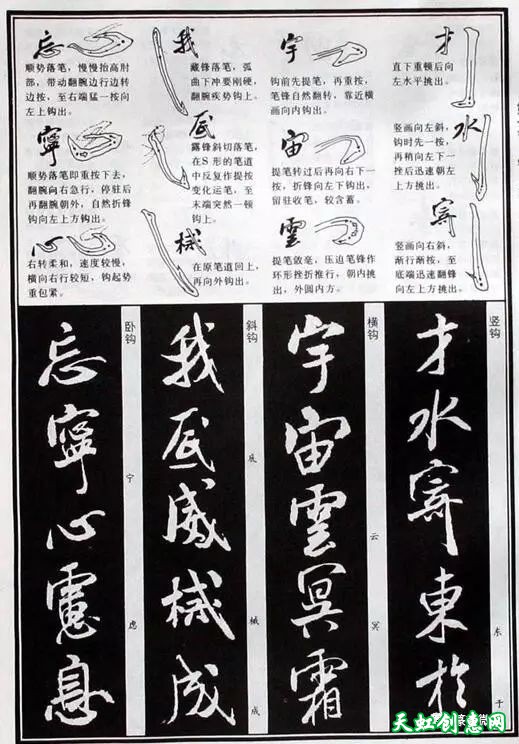 才
直下重顿后向
左水平挑出。
水
竖画向左斜，
钩时先一按，
再稍向左下一
挫后迅速朝左
上方挑出。
寄
竖画向右斜，
渐行渐按，至
底端迅速翻锋
向左上方挑出。
宇
钩前先提笔，再重按，
笔锋自然翻转，靠近横
画向内钩出。
宙
提笔转过后再向右下一
按，折锋向左下钩出，
留驻收笔，较含蓄。
雲
提笔敛毫，压迫笔锋作
环形挫折推行，朝内挑
出，外圆内方。
我
藏锋落笔，弧
曲下冲要刚硬，
翻腕疾势钩上。
底
露锋斜切落笔，
在S形的笔道
中反复作提按
变化运笔，至
末端突然一顿
钩上。
械
在原笔道回上，
再向外钩出。
忘
顺势落笔，慢慢抬高肘
部，带动翻腕边行边转
边按，至右端猛一按向
左上钩出。
寧
顺势落笔即重按下去，
翻腕向右急行，停驻后
再翻腕朝外，自然折锋
钩向左上方钩出。
心
右转柔和，速度较慢，
横向右行较短，钩起势
重包紧。
竖钩
才水寄東於
东
于
横钩
宇宙雲冥霜
云
冥
斜钩
我底威械成
底
械
成
卧钩
忘寧心慮息
宁
虑
天虹创意网